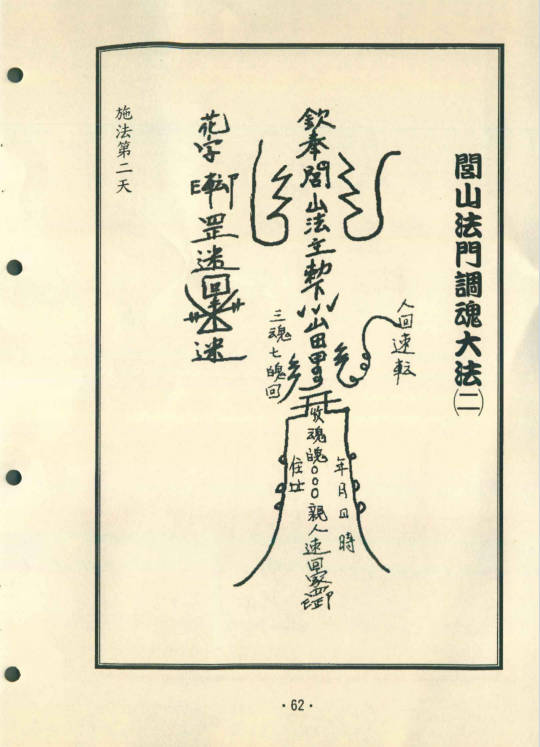 閭山法門調魂大法(二)
人回速転
欽奉閭山法主勅下
山田
年月日時
收魂魄○○○親人速回家
住址
三魂七魄回
花字
罡迷回
迷
施法第二天
·62·